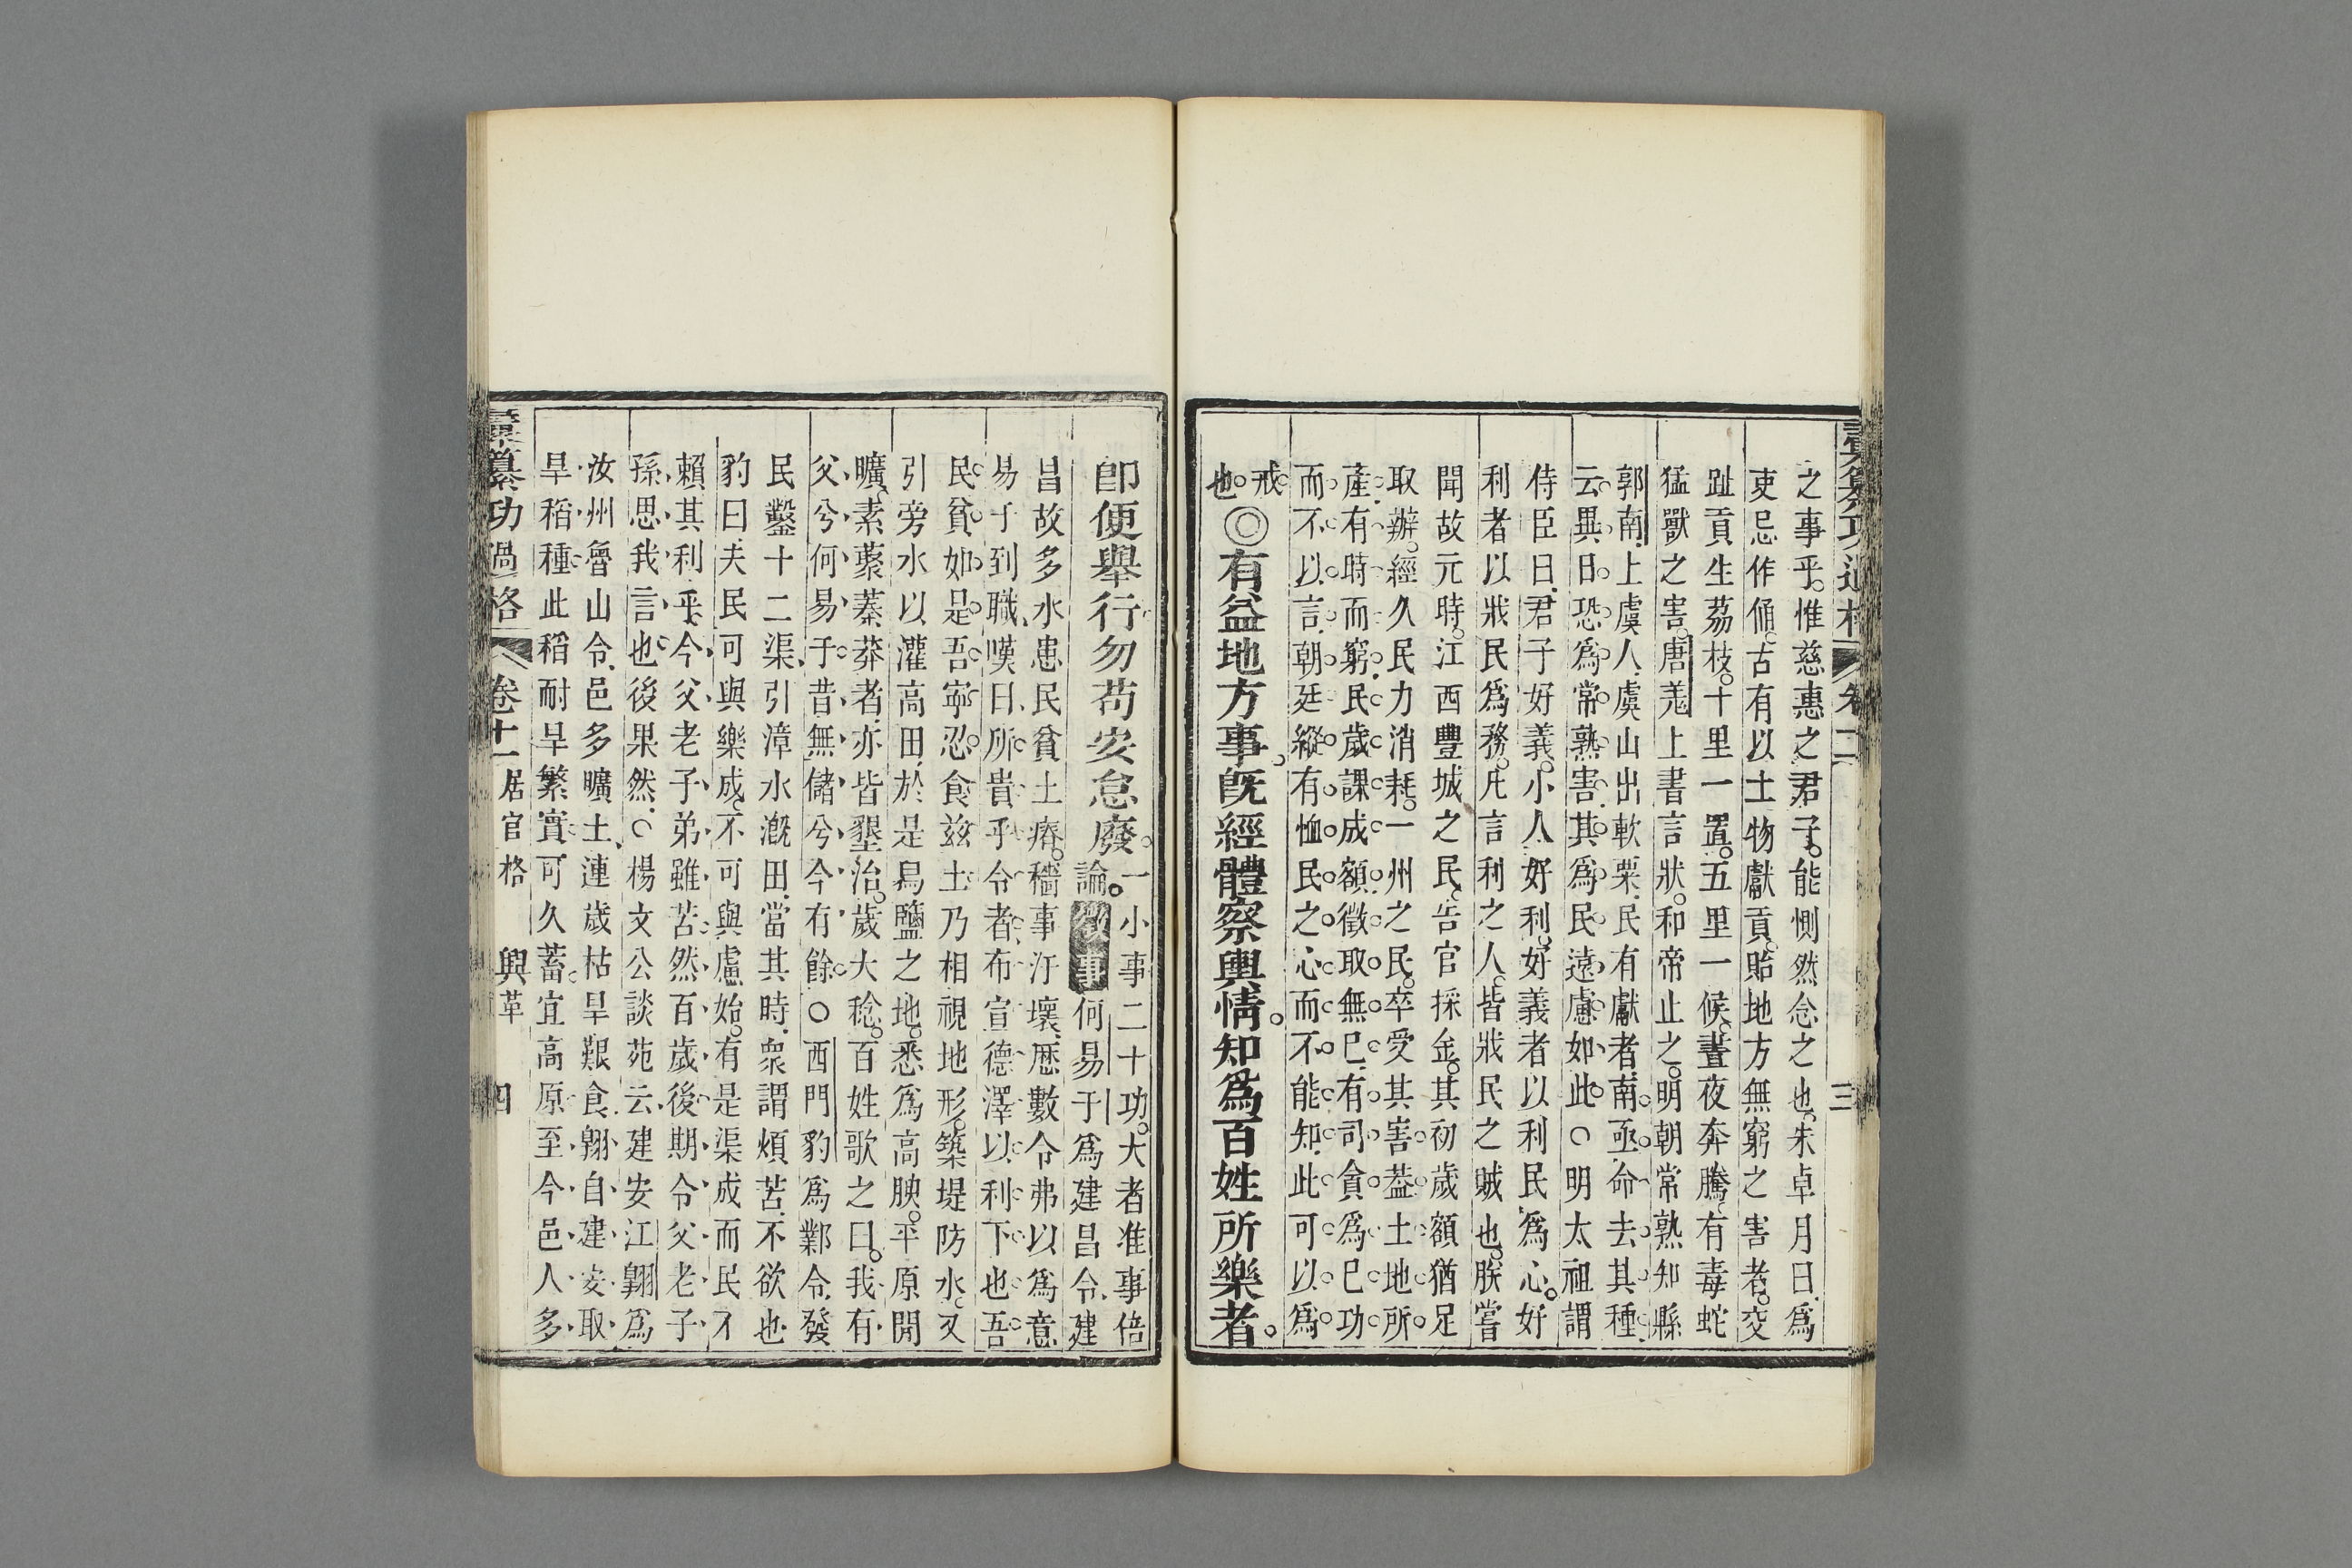 之事乎。惟慈惠之君子。能惻然念之也。朱卓月曰。爲
吏忌作俑。古有以土物獻貢。貽地方無窮之害者。交
趾貢生荔枝。十里一置。五里一候。晝夜奔騰。有毒蛇
猛獸之害。唐羌上書言狀。和帝止之。明朝常熟知縣
郭南。上虞人。虞山出軟栗。民有獻者。南亟命去其種。
云異日恐爲常熟害。其爲民遠慮如此。○明太祖謂
侍臣曰。君子好義。小人好利。好義者以利民爲心。好
利者以戕民爲務。凡言利之人。皆戕民之賊也。朕嘗
聞故元時。江西豐城之民。告官採金。其初歲額猶足
取辦。經久民力消耗。一州之民。卒受其害。葢土地所
產。有時而窮。民歲課成額。徵取無已。有司貪爲已功。
而不以言。朝廷縱有恤民之心。而不能知。此可以爲
戒也。
◎有益地方事。旣經體察輿情。知爲百姓所樂者。
卽便舉行。勿苟安怠廢。一小事二十功。大者准事倍
論。徵事何易于爲建昌令。建
昌故多水患。民貧土瘠。穡事汙壞。歷數令弗以爲意。
易于到職。嘆曰。所貴乎令者。布宣德澤以利下也。吾
民貧如是。吾寧忍食兹土。乃相視地形。築堤防水。又
引旁水以灌高田。於是舃鹽之地。悉爲高腴。平原閒
曠。素藂蓁莽者。亦皆墾治。歲大稔。百姓歌之曰。我有
父兮何易于。昔無儲兮今有餘。○西門豹爲鄴令。發
民鑿十二渠。引漳水漑田。當其時。衆謂煩苦。不欲也。
豹曰。夫民可與樂成。不可與慮始。有是渠成而民不
賴其利乎。今父老子弟雖苦。然百歲後期令父老子
孫思我言也。後果然。○楊文公談苑云。建安江翺爲
汝州魯山令。邑多曠土。連歲枯旱艱食。翺自建安取
旱稻種。此稻耐旱繁實。可久蓄。宜高原。至今邑人多
彙纂功過格 卷十一 居官格 興革 四
彙纂功過格 三